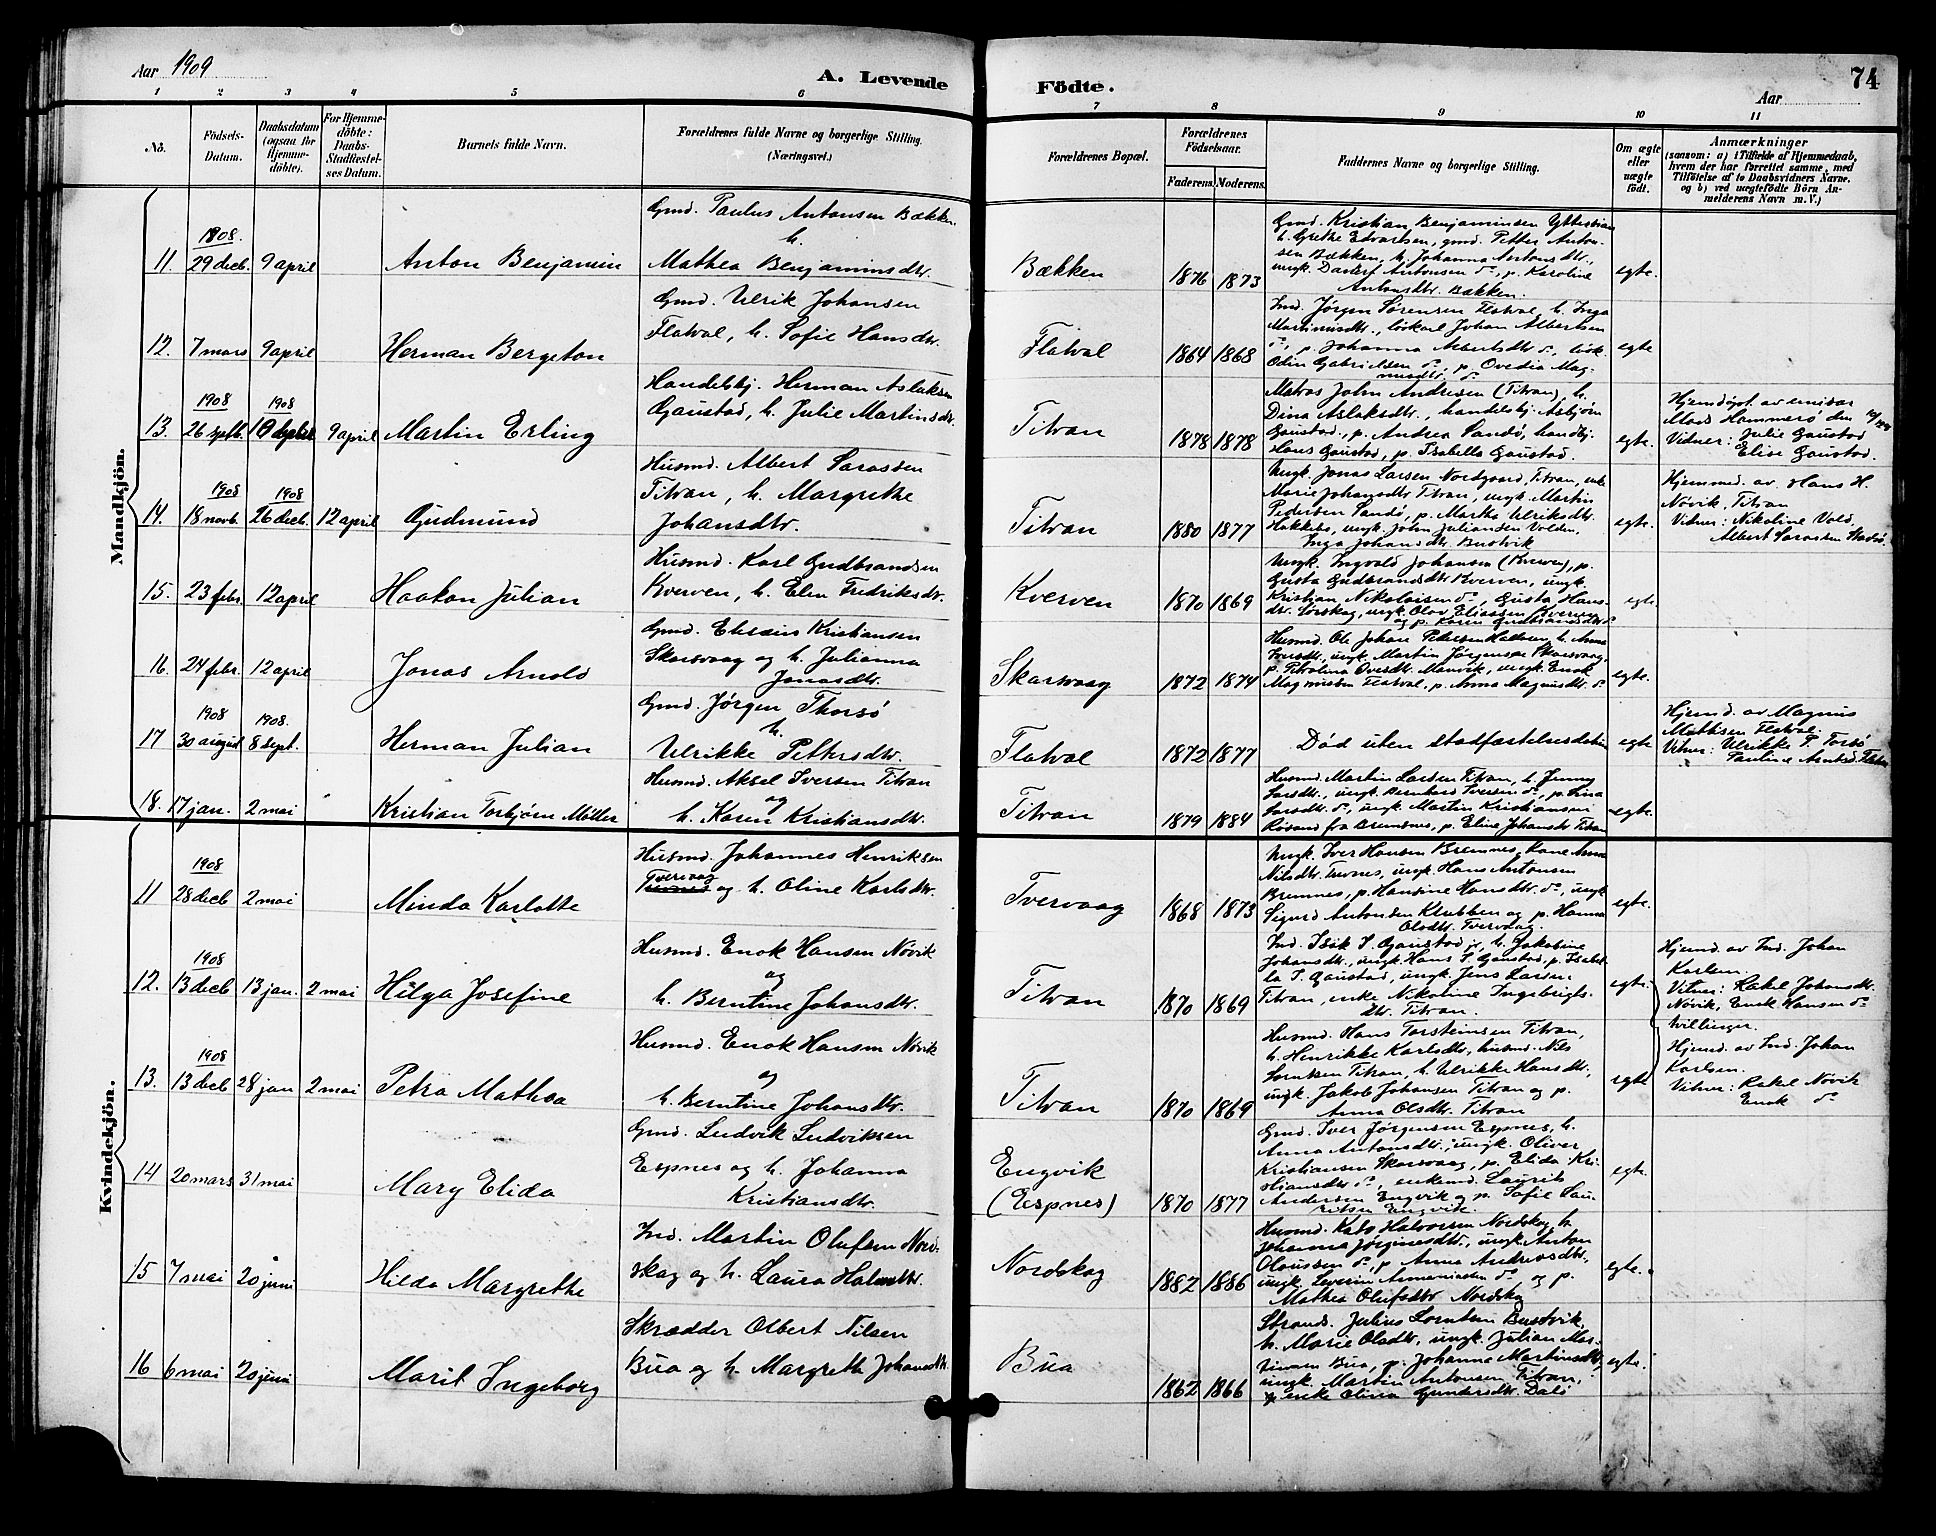 Aar 1909
A. Levende
Födte.
Aar
74
1 2 3 4 5 6 7 8 9 10 11
No.
Födsels-
Datum.
Daabsdatum
(ogsaa for
Hjemme-
döbte).
For Hjemme-
döbte:
Daabs-
Stadfæstel-
ses Datum.
Barnets fulde Navn.
Forældrenes fulde Navne og borgerlige Stilling.
(Næringsvei.)
Forældrenes Bopæl.
Forældrenes
Födselsaar.
Faderens. Moderens.
Faddernes Navne og borgerlige Stilling.
Om ægte
eller
uægte
født.
Anmærkninger
(saasom: a) i Tilfælde af Hjemmedaab,
hvem der har forrettet samme, med
Tilföielse af to Daabsvidners Navne,
og b) ved uægtefödte Börn An-
melderens Navn m. V.)
Mandkjön.
11. 1908. 29 decb. 9 april Anton Benjamin
Gmd. Paulus Antonsen Bækken
h.
Mathea Benjaminsdtr.
Bækken 1876 1873
Gmd. Kristian Benjaminsen
h. Grethe Edvartsen, gmd. Petter Anton-
sen Bækken, h. Johanna Antonsdtr.,
ungk. Antonsen do, p. Karoline
Antonsdtr. Bækken.
egte.
12. 7 mars 9 april Herman Bergeton
Gmd. Ulrik Johansen
Flatval, h. Sofie Hansdtr.
Flatval 1864 1868
Ind. Jørgen Sørensen Flatval, h. Inga
Martinusdtr., Johan Albertsen
do, p. Johanna Albertsdtr do,
Odin Gabrielsen do, p. Ovedia Mag-
nusdtr. do
egte
13. 1908 26 septb. 1908 9 april Martin Erling
Handelsbj. Herman Aslaksen
Gaustad, h. Julie Martinsdtr.
Titran 1878 1878
Matros John Andresen (Titran), h.
Dina Aslaksdtr., handelsbj. Asbjørn
Gaustad, p. Andrea Sandø, handbj.
Hans Gaustad, p. Isabella Gaustad.
egte.
Hjemdøpt av emisær
Mads Hammerø den
Vidner: Julie Gaustad
Elise Gaustad
14. 1908 18 novb. 1908 26 decb. 12 april Gudmund
Husmd. Albert Larssen
Titran, h. Margrethe
Johansdtr.
Titran 1880 1877
Ungk. Jonas Larsen Nordgaard, Titran,
Marie Johansdtr Titran, ungk. Martin
Pedersen Sandø, p. Martha Ulriksdtr.
Hakkebo, ungk. John Juliansen Volden,
Inga Johansdtr. Bustvik
egte.
Hjemmed. av. Hans H.
Növik, Titran
Vidner: Nikoline Vold,
Albert Larssen
15. 23 febr. 12 april Haakon Julian
Husmd. Karl Gudbrandsen
Kverven, h. Elen Fredriksdtr.
Kverven 1870 1869
Ungk. Ingvald Johansen (Kverven), p.
Gusta Gudbrandsdtr Kverven, ungk.
Kristian Nikolaisen do, Gusta Hans-
dtr. Sørskag, ungk. Olav Eliassen Kverven
og p. Karen Gudbrandsdtr do
egte.
16. 24 febr. 12 april Jonas Arnold
Gmd. Eliseus Kristiansen
Skarsvaag og h. Julianna
Jonasdtr.
Skarsvaag 1872 1874
Husmd. Ole Johan Pedersen h. Anna
Iversdtr., ungk. Martin Jørgensen Skarsvaag,
p. Petrolina Ovesdtr. ungk. Enok
Magnussen Flatval, p. Anna Magnusdtr. do
egte.
17 1908 30 august 1908. 8 sept. Herman Julian
Gmd. Jørgen Thorsø
h.
Ulrikke Pettersdtr.
Flatval 1872 1877
Død uten stadfæstelsesdaten
egte
Hjemd. av Magnus
Mathisen Flatval.
Vitner: Ulrikke P. Torsø
Pauline
18. 17 jan. 2 mai Kristian Torbjørn Möller
Husmd. Aksel Iversen Titran
og
h. Karen Kristiansdtr.
Titran 1879 1884
Husmd. Martin Larsen Titran, h. Jenny
Larsdtr., ungk. Bernhard Iversen do, p. Lina
Larsdtr. do, ungk. Martin Kristiansen
Røsand fra Bremsnes, p. Eline Johansdtr Titran
egte.
Kvindekjön.
11 1908 28 decb 2 mai Minda Karlotte
Husmd. Johannes Henriksen
Tvervaag og h. Oline Karlsdtr.
Tvervaag 1868 1873
Ungk. Iver Hansen Bremnes, kone Anna
Nilsdtr. ungk. Hans Antonsen
Bremnes, p. Hansine Hansdtr. do, ungk
Sigurd Antonsen Klubben og p. Hanna
Olsdtr. Tvervaag.
egte.
12. 1908 13 decb 13 jan. 2 mai Hilga Josefine
Husmd. Enok Hansen Növik
og
h. Berntine Johansdtr.
Titran 1870 1869
Ind. Isik P. Gaustad, h. Jakobine
Johansdtr., ungk. Hans P. Gaustad, p. Isabel-
la P. Gaustad, ungk. Jens Larsen
Titran, enke Nikoline Ingebrigts-
dtr. Titran.
egte.
Hjemd. av Ind. Johan
Karlsen.
Vitner: Rakel Johansdtr.
Növik, Enok Hansen do
Tvillinger.
13. 1908 13 decb 28 jan 2 mai Petra Mathea
Husmd. Enok Hansen Növik
og
h. Berntine Johansdtr.
Titran 1870 1869
Husmd. Hans Torsteinsen Titran,
h. Henrikke Karlsdtr., husmd. Nils
Lorntsen Titran, h. Ulrikke Hansdtr.,
ungk. Jakob Johansen Titran og p.
Anna Olsdtr. Titran
egte
Hjemd. av Ind. Johan
Karlsen.
Vitner: Rakel Növik
Enok do
14 20 mars 31 mai Mary Elida
Gmd. Ludvik Ludviksen
Espnes og h. Johanna
Kristiansdtr.
Engvik
(Espnes) 1870 1877
Gmd. Iver Jørgensen Espnes, h.
Anna Antonsdtr., ungk. Oliver
Kristiansen Skarsvaag, p. Elida Kri-
stiansdtr do, enkemd. Laurits
Andersen Engvik og p. Sofie Lau-
ritsen Engvik.
egte.
15 7 mai 20 juni Hilda Margrethe
Ind. Martin Olufsen Nord-
skag og h. Laura
Nordskag 1882 1886
Husmd. Halvorsen Nordskag, h.
Johanna Jørginesdtr., ungk. Anton
Olaussen do, p. Anna Andreasdtr.,
ungk. Severin do, og p.
Mathea Olufsdtr Nordskag
egte.
16 6 mai 20 juni Marit Ingeborg
Skrædder Olbert Nilsen
Bua og h. Margreth Johansdtr.
Bua 1862 1866
Strands. Julius Lorntsen Bustvik,
h. Marie Olsdtr., ungk. Julian Mar-
tinsen Bua, p. Johanna Martinsdtr.,
ungk. Martin Antonsen Titran,
enke Olina Gundersdtr. Dalø
egte.